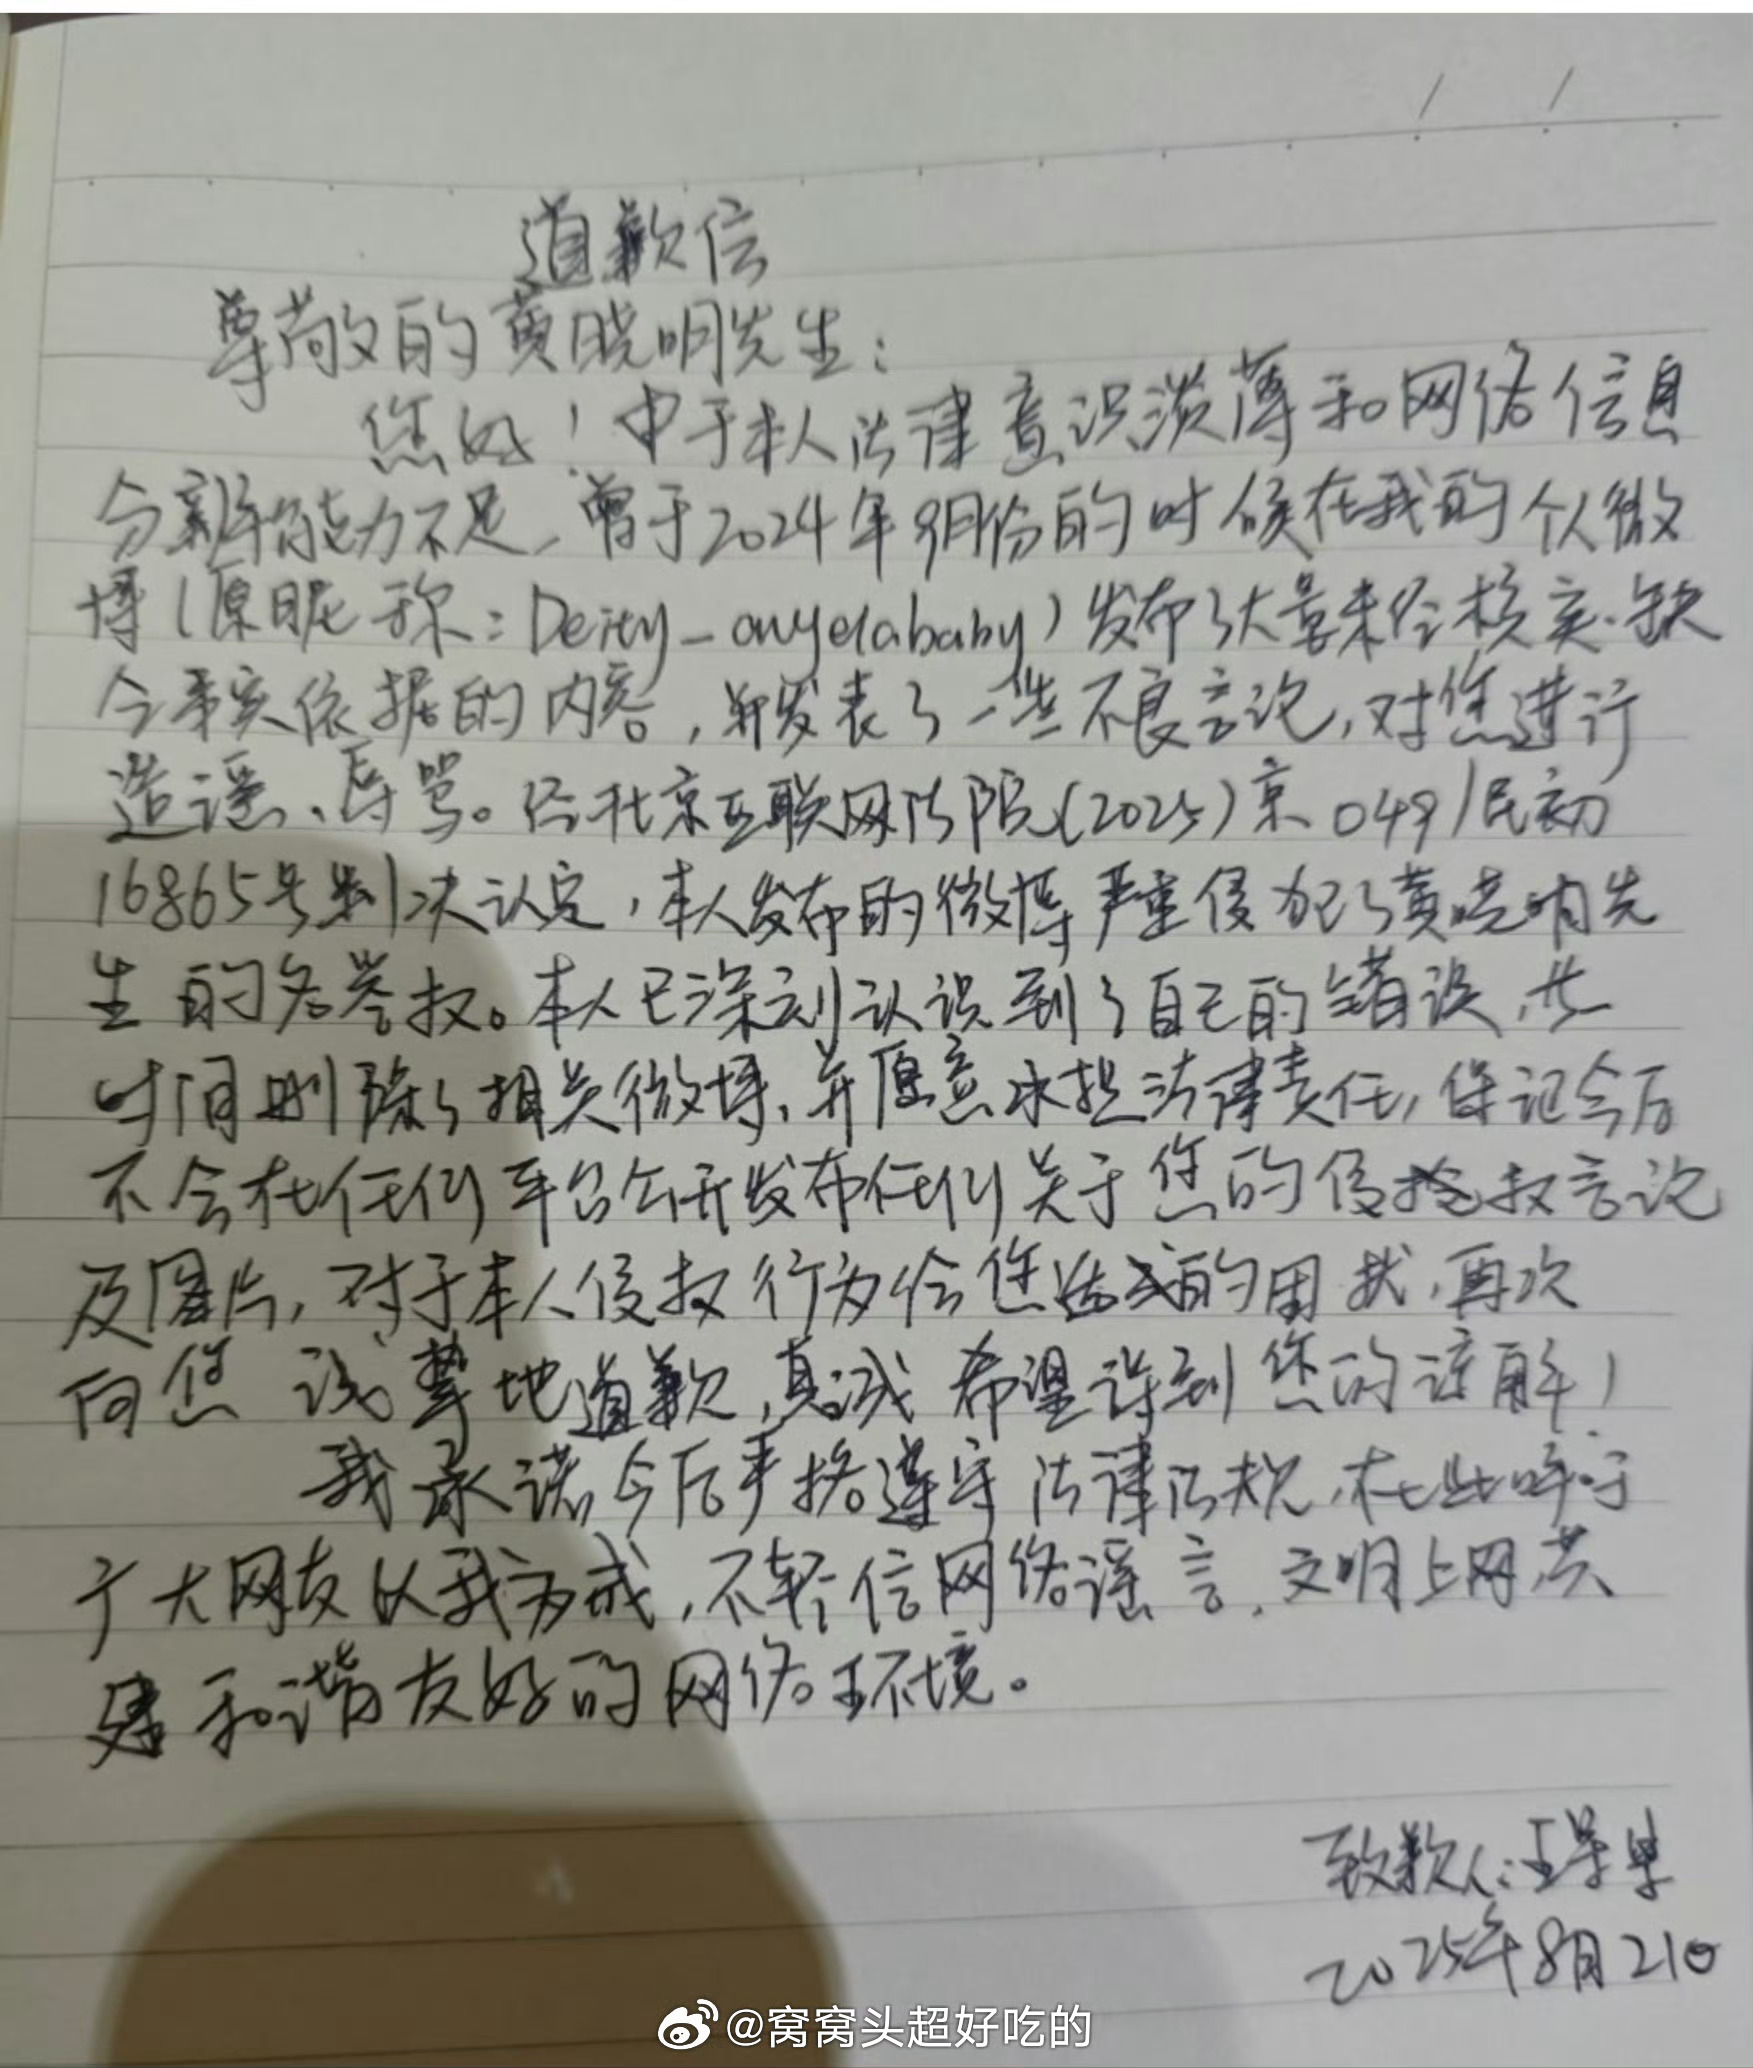 道歉信
尊敬的黄晓明先生：
您好！由于本人法律意识淡薄和网络信息
分辨能力不足，曾于2024年9月份的时候在我的个人微
博（原昵称：Deity_onyelababy）发布了大量未经核实、缺
令事实依据的内容，并发表了一些不良言论，对您进行
造谣、辱骂。经北京互联网法院（2025）京0491民初
16865号判决认定，本人发布的微博严重侵犯了黄晓明先
生的名誉权。本人已深刻认识到了自己的错误，共
时间删除了相关微博，并愿意承担法律责任，保记今后
不会在任何平台公开发布任何关于您的侵权言论
及图片，对于本人侵权行为给您造成的困扰，再次
向您诚挚地道歉，真诚希望得到您的谅解！
我承诺今后严格遵守法律法规，在此呼吁
广大网友以我为戒，不轻信网络谣言，文明上网，共
建和谐友好的网络环境。
致歉人：汪
2025年8月21日
@窝窝头超好吃的